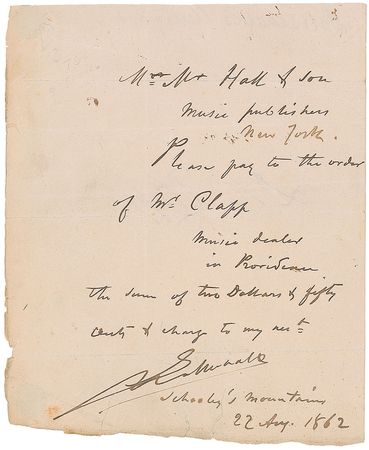 Mrs Mr Hall & son
music publishers
New York.
Please pay to the order
of Mr Clapp
Music dealer
in Providence
the sum of two Dollars & fifty
cents & charge to my acct
Schooley's Mountains
22 Aug. 1862